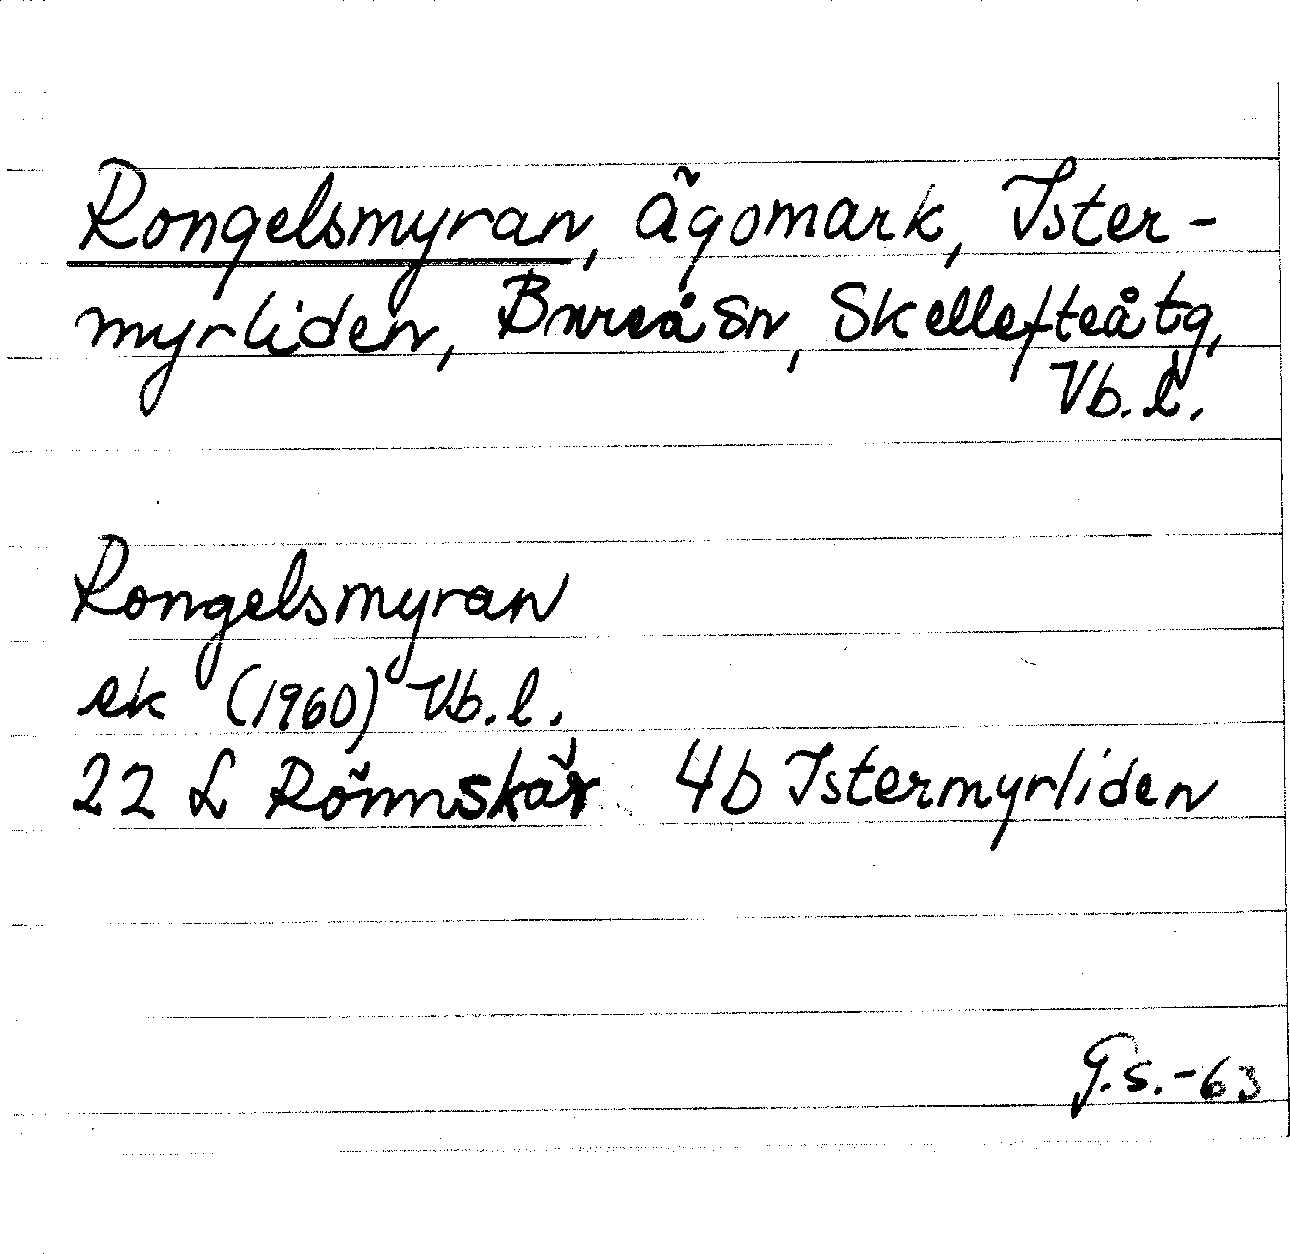 Rongelsmyran, ägomark, Ister-
myrliden, Bureå sn, Skellefteå tg,
Vb. l.
Rongelsmyran
ek (1960) Vb. l.
22 L Rönnskär 4b Istermyrliden
G.s.-63